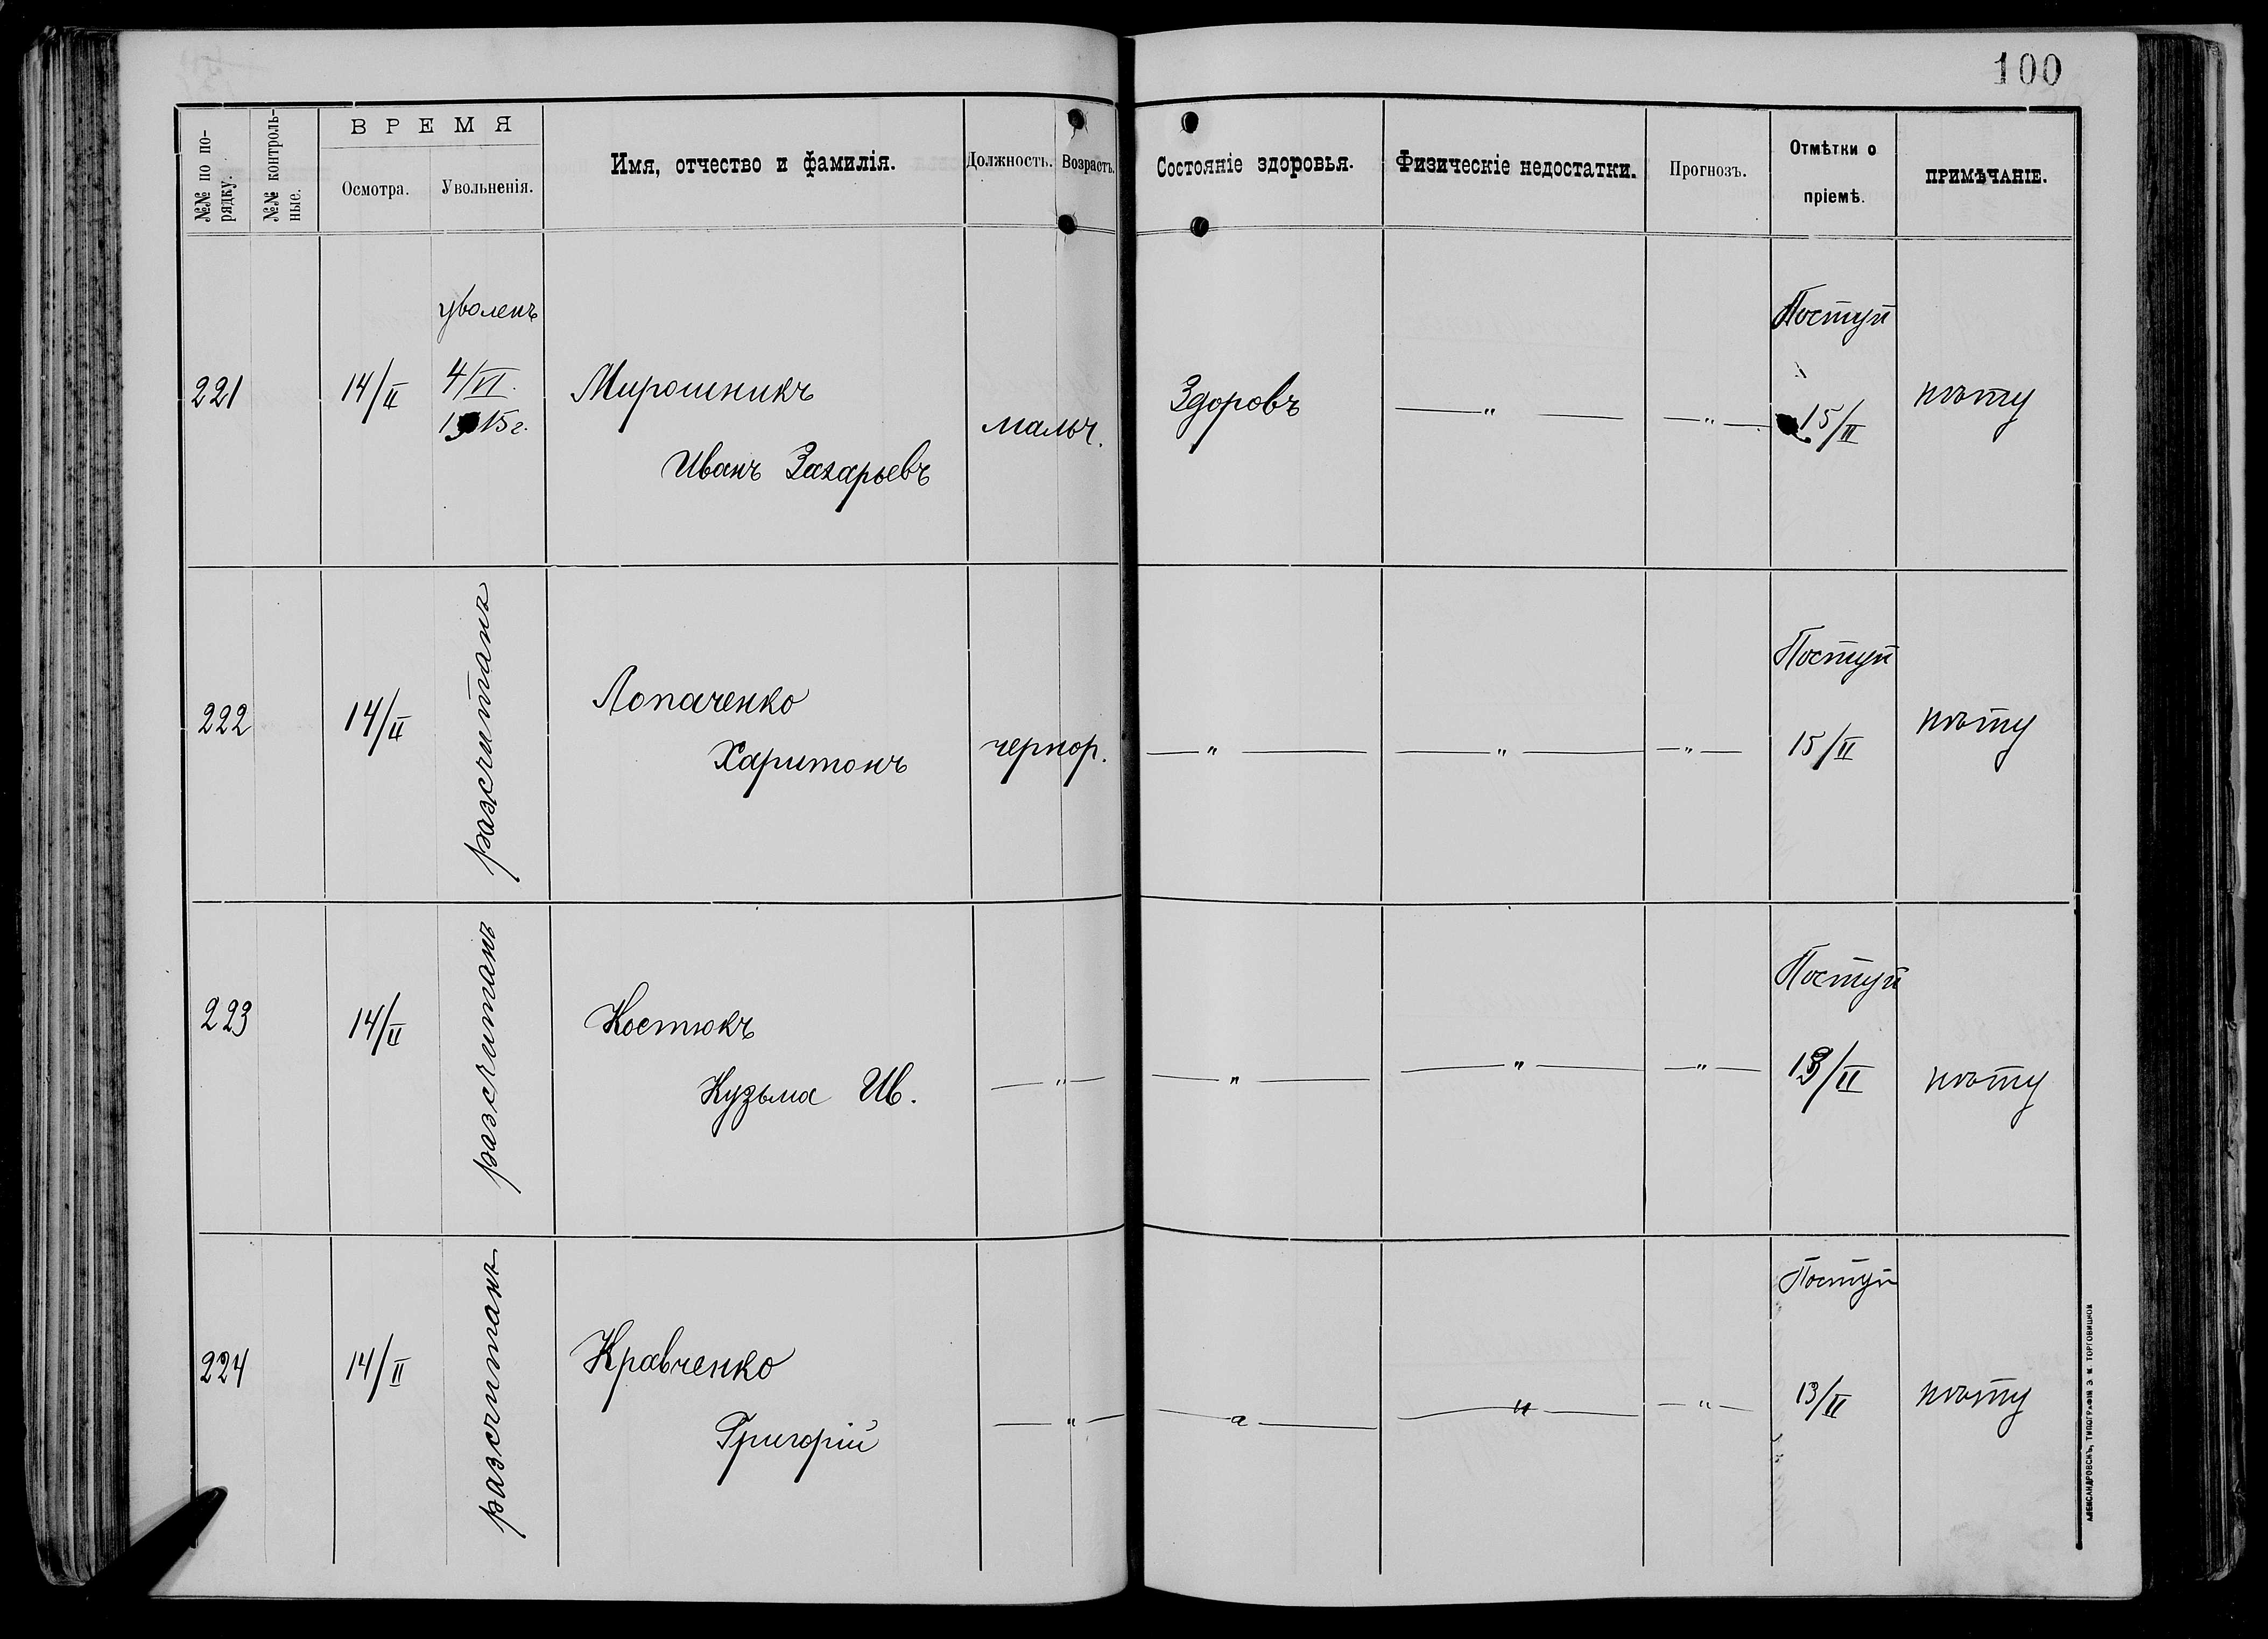 100
№№ по по-
рядку.
№№ контроль-
ные.
ВРЕМЯ
Осмотра.
Увольненія.
Имя, отчество и фамилія.
Должность.
Возрастъ.
Состояніе здоровья.
Физическіе недостатки.
Прогнозъ.
Отмѣтки о
пріемѣ.
ПРИМѢЧАНІЕ.
221
14/II
уволенъ
4/VI.
1915г.
Мирошникъ
Иванъ Захарьевъ
мальч.
Здоровъ
— " —
— " —
Поступ
15/II
222
14/II
разсчитанъ
Лопаченко
Харитонъ
чернор.
— " —
— " —
— " —
Поступ
15/II
223
14/II
разсчитанъ
Костюкъ
Кузьма Ив.
— " —
— " —
— " —
— " —
Поступ
13/II
224
14/II
разсчитанъ
Кравченко
Григорій
— " —
— " —
— " —
— " —
Поступ
13/II
АЛЕКСАНДРОВСКЪ, ТИПОГРАФІЯ Э. И. ТОРГОВИЦКОЙ